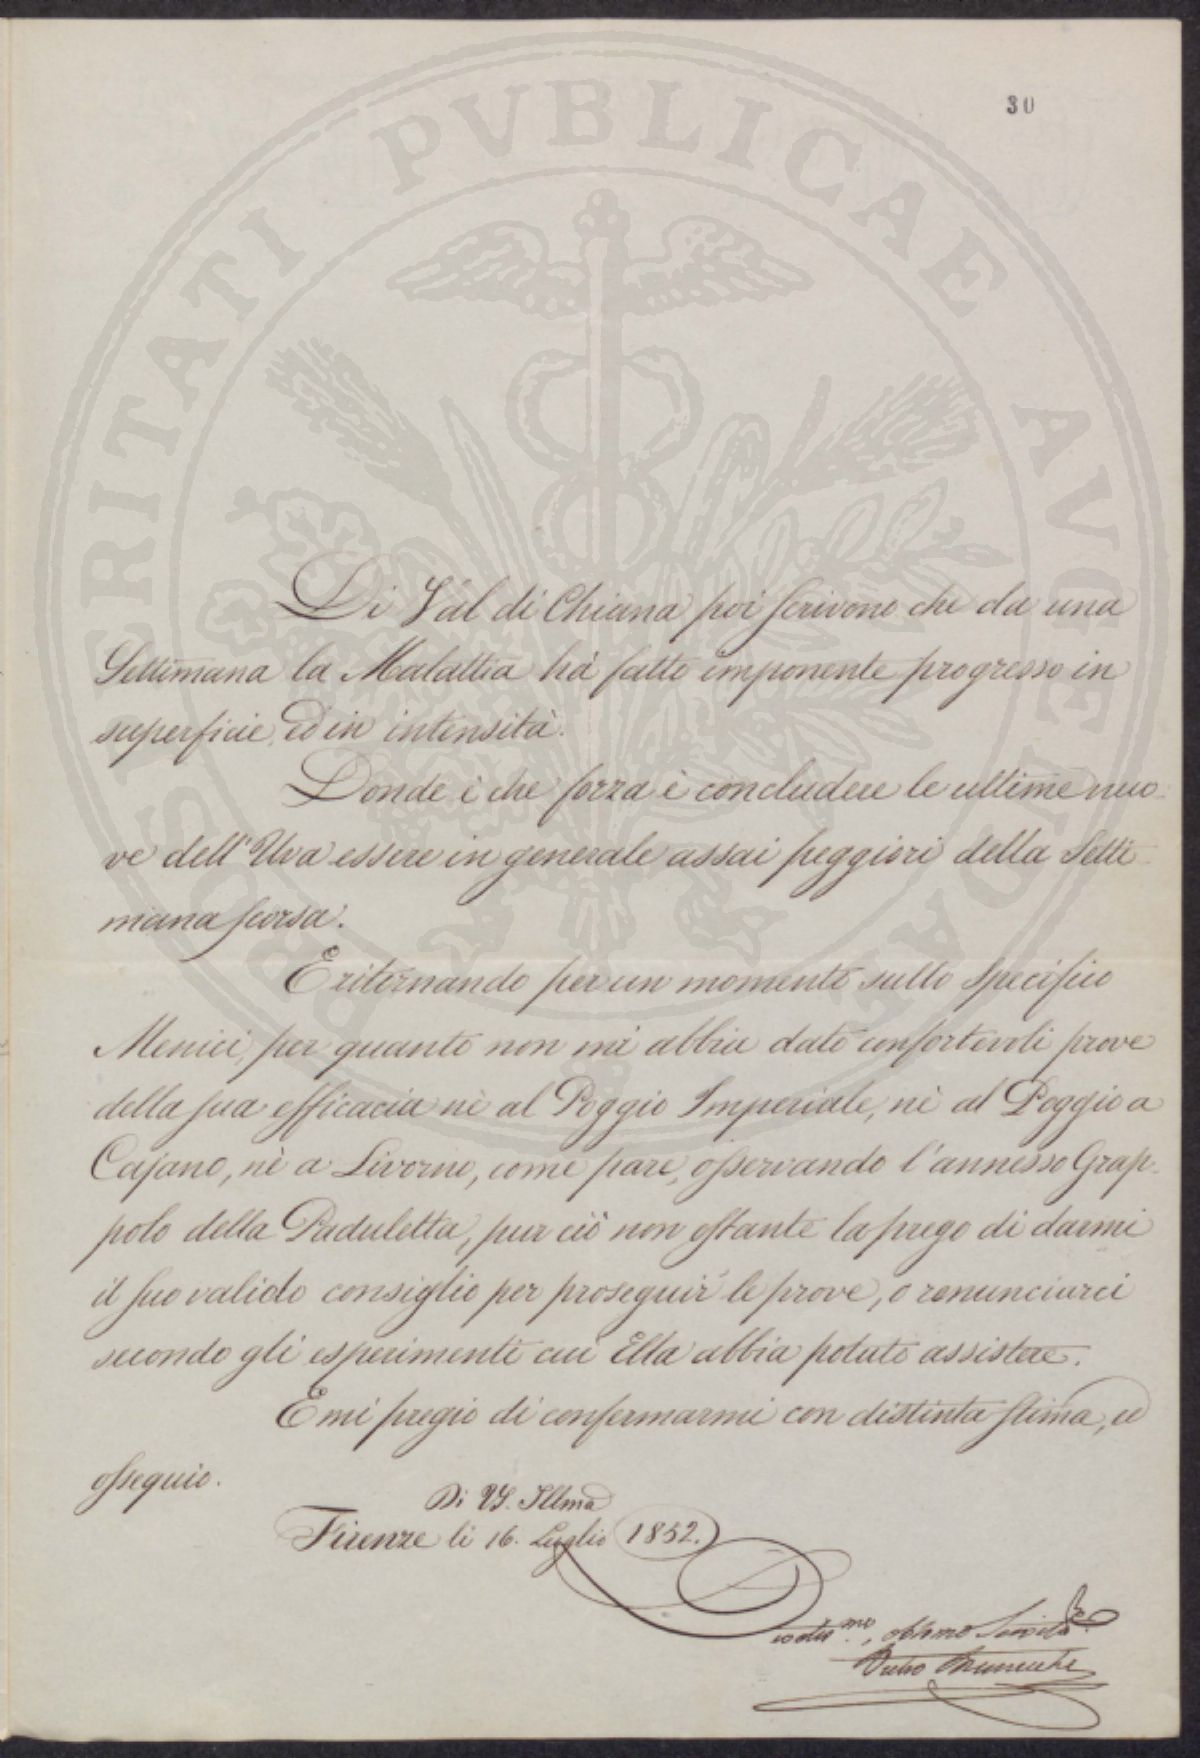 30
PROSPERITATI PVBLICAE AVGENDAE
Di Val di Chiana poi scrivono che da una
Settimana la Malattia hà fatto imponente progresso in
superficie, ed in intensità.
Donde è che forza è concludere le ultime nuo-
ve dell'Uva essere in generale assai peggiori della Setti-
mana scorsa.
E ritornando per un momento sullo specifico
Menici, per quanto non mi abbia dato confortevoli prove
della sua efficacia nè al Poggio Imperiale, nè al Poggio a
Cajano, nè a Livorno, come pare, osservando l'annesso Grap-
polo della Paduletta, pur ciò non ostante la prego di darmi
il suo valido consiglio per proseguir le prove, o renunciarci
secondo gli esperimenti cui Ella abbia potuto assistere.
E mi pregio di confermarmi con distinta stima, ed
ossequio.
Di VS. Illma
Firenze li 16. Luglio 1852.